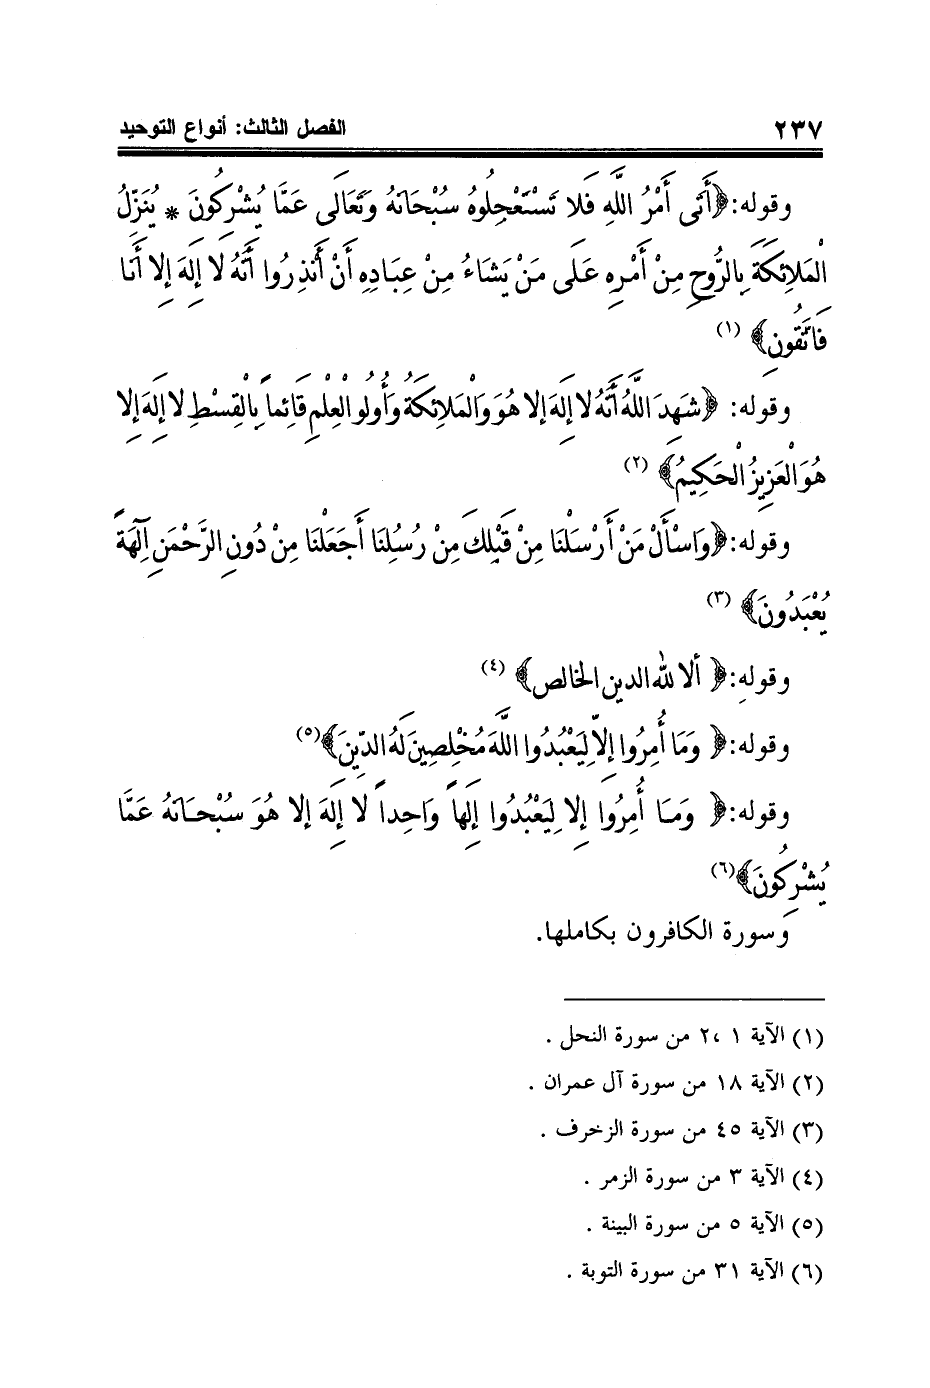 ٢٣٧ الفصل الثالث: أنواع التوحيد
وقوله: ﴿أَتَى أَمْرُ اللَّهِ فَلا تَسْتَعْجِلُوهُ سُبْحَانَهُ وَتَعَالَى عَمَّا يُشْرِكُونَ * يُنَزِّلُ
الْمَلائِكَةَ بِالرُّوحِ مِنْ أَمْرِهِ عَلَى مَنْ يَشَاءُ مِنْ عِبَادِهِ أَنْ أَنْذِرُوا أَنَّهُ لا إِلَهَ إِلا أَنَا
فَاتَّقُونِ﴾ (١)
وقوله: ﴿شَهِدَ اللَّهُ أَنَّهُ لا إِلَهَ إِلا هُوَ وَالْمَلائِكَةُ وَأُولُو الْعِلْمِ قَائِماً بِالْقِسْطِ لا إِلَهَ إِلا
هُوَ الْعَزِيزُ الْحَكِيمُ﴾ (٢)
وقوله: ﴿وَاسْأَلْ مَنْ أَرْسَلْنَا مِنْ قَبْلِكَ مِنْ رُسُلِنَا أَجَعَلْنَا مِنْ دُونِ الرَّحْمَنِ آلِهَةً
يُعْبَدُونَ﴾ (٣)
وقولهِ: ﴿ ألا لله الدين الخالص﴾ (٤)
وقوله: ﴿ وَمَا أُمِرُوا إِلاَّ لِيَعْبُدُوا اللَّهَ مُخْلِصِينَ لَهُ الدِّينَ﴾(٥)
وقوله: ﴿ وَمَا أُمِرُوا إِلا لِيَعْبُدُوا إِلَهاً وَاحِداً لا إِلَهَ إِلا هُوَ سُبْحَانَهُ عَمَّا
يُشْرِكُونَ﴾(٦)
وَسورة الكافرون بكاملها.
(١) الآية ١ ،٢ من سورة النحل .
(٢) الآية ١٨ من سورة آل عمران .
(٣) الآية ٤٥ من سورة الزخرف .
(٤) الآية ٣ من سورة الزمر .
(٥) الآية ٥ من سورة البينة .
(٦) الآية ٣١ من سورة التوبة .